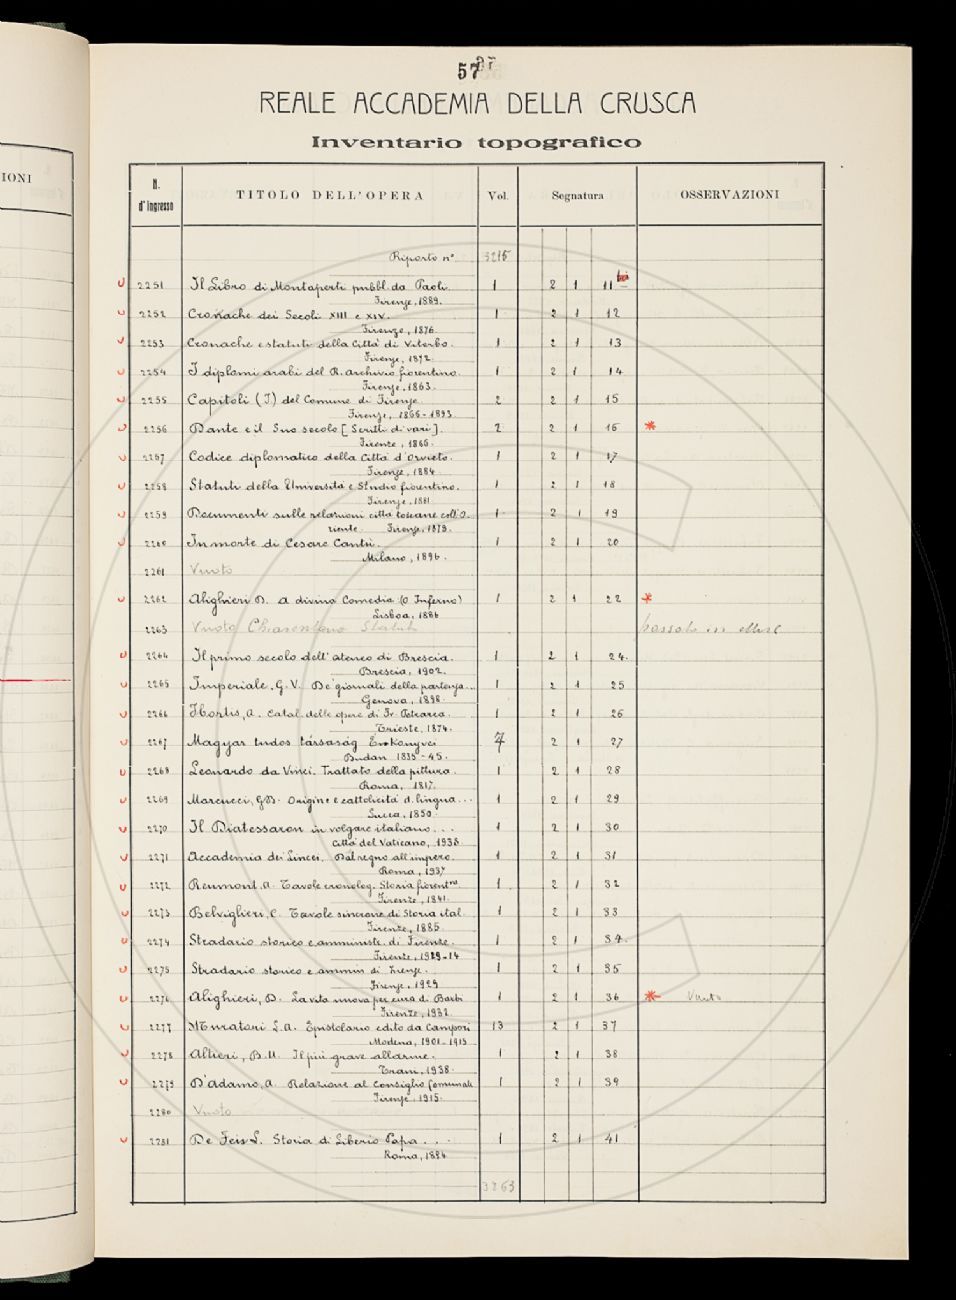 IONI
57
REALE ACCADEMIA DELLA CRUSCA
Inventario topografico
N. d'Ingresso TITOLO DELL'OPERA Vol. Segnatura OSSERVAZIONI
Riporto n° 3215
2251 Il Libro di Montaperti pubbl. da Paoli. 1 2 1 11 bis
Firenze, 1889.
2252 Cronache dei Secoli XIII e XIV. 1 2 1 12
Firenze, 1876.
2253 Cronache e statuti della Città di Viterbo. 1 2 1 13
Firenze, 1872.
2254 I diplomi arabi del R. archivio fiorentino. 1 2 1 14
Firenze, 1863.
2255 Capitoli (I) del Comune di Firenze. 2 2 1 15
Firenze, 1866-1893
2256 Dante e il Suo secolo [Scritti di vari]. 2 2 1 16 *
Firenze, 1865.
2257 Codice diplomatico della Città d'Orvieto. 1 2 1 17
Firenze, 1884.
2258 Statuti della Università e Studio fiorentino. 1 2 1 18
Firenze, 1881.
2259 Documenti sulle relazioni città toscane coll'O- 1 2 1 19
riente. Firenze, 1879.
2260 In morte di Cesare Cantù. 1 2 1 20
Milano, 1896.
2261 Vuoto
2262 Alighieri D. A divina Comedia (O Inferno) 1 2 1 22 *
Lisboa, 1886
2263 Vuoto
2264 Il primo secolo dell'ateneo di Brescia. 1 2 1 24.
Brescia, 1902.
2265 Imperiale, G. V. De' giornali della partenza... 1 2 1 25
Genova, 1898.
2266 Hortis, A. Catal. delle opere di Fr. Petrarca. 1 2 1 26
Trieste, 1874.
2267 Magyar tudos társaság Évkönyvei 7 2 1 27
Budan 1835-45.
2268 Leonardo da Vinci. Trattato della pittura. 1 2 1 28
Roma, 1817.
2269 Marcucci, G.B. Origine e cattolicità d. lingua... 1 2 1 29
Lucca, 1850.
2270 Il Diatessaron in volgare italiano... 1 2 1 30
Città del Vaticano, 1938
2271 Accademia dei Lincei. Dal regno all'impero. 1 2 1 31
Roma, 1937
2272 Reumont, A. Tavole cronolog. Storia fiorentna 1 2 1 32
Firenze, 1841.
2273 Belviglieri, C. Tavole sincrone di Storia ital. 1 2 1 33
Firenze, 1885.
2274 Stradario storico e amministr. di Firenze. 1 2 1 34.
Firenze,
2275 Stradario storico e ammin di Firenze. 1 2 1 35
Firenze, 1929
2276 Alighieri, D. La vita nuova per cura di Barbi 1 2 1 36 * Vuoto
Firenze, 1932.
2277 Muratori L. A. Epistolario edito da Campori 13 2 1 37
Modena, 1901-1915
2278 Altieri, B. M. Il più grave allarme. 1 2 1 38
Trani, 1938.
2279 D'Adamo, A. Relazione al Consiglio Comunale 1 2 1 39
Firenze, 1915.
2280 Vuoto
2281 De Feis L. Storia di Liberio Papa... 1 2 1 41
Roma, 1894
3263